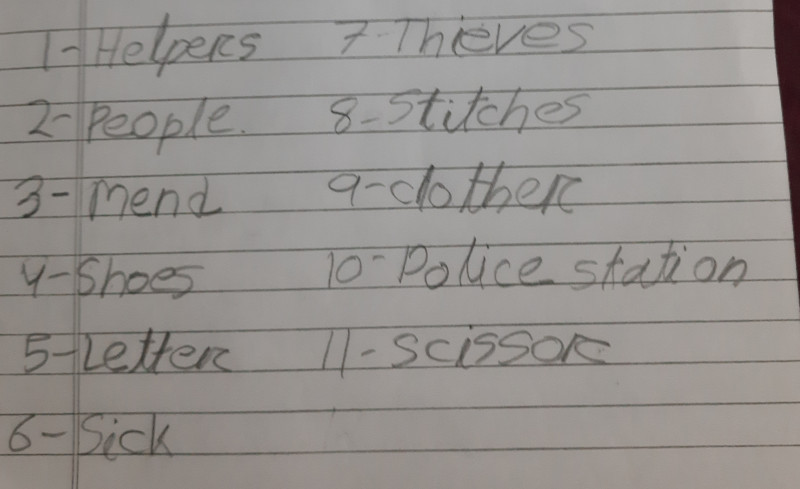 1- Helpers
2- People.
3- Mend
4- Shoes
5- Letter
6- Sick
7- Thieves
8- Stitches
9- clother
10- Police station
11- scissor